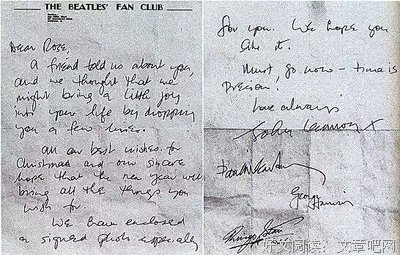 THE BEATLES' FAN CLUB
Dear Rose,
A friend told us about you,
and we thought that we
might bring a little joy
into your life by dropping
you a few lines.
All our best wishes for
Christmas and our sincere
hope that the new year will
bring all the things you
wish for.
We have enclosed
a signed photo especially
for you. We hope you
like it.
Must go now - time is
Precious!
love always
John Lennon x
Paul McCartney
George Harrison
Ringo Starr
好文阅读:文章吧网